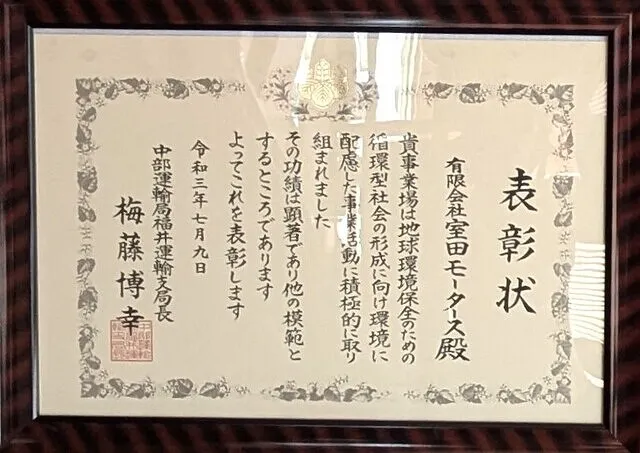 表彰状
有限会社室田モータース殿
貴事業場は地球環境保全のための
循環型社会の形成に向け環境に
配慮した事業活動に積極的に取り
組まれました
その功績は顕著であり他の模範と
するところであります
よってこれを表彰します
令和三年七月九日
中部運輸局福井運輸支局長
梅藤博幸